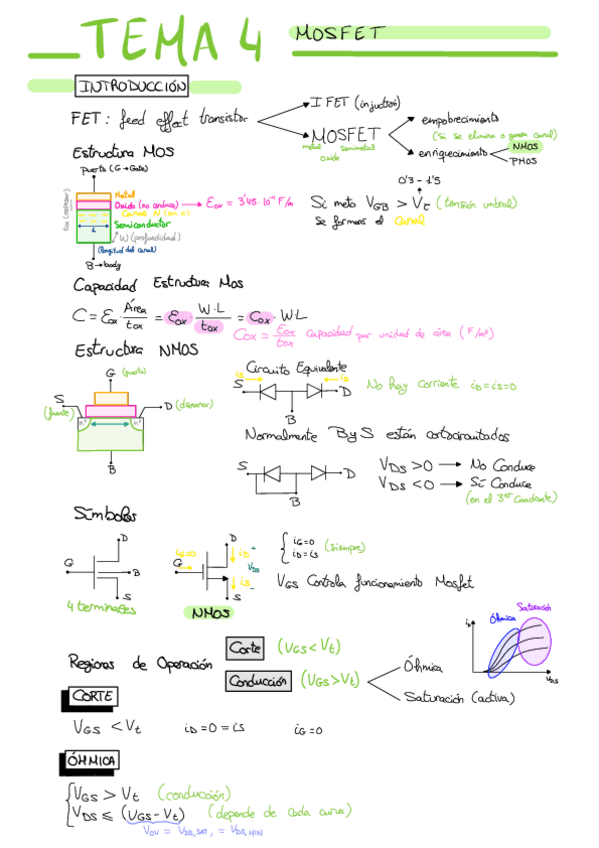 TEMA 4 MOSFET
INTRODUCCIÓN
FET: feed effect transistor
IFET (injuction)
MOSFET
metal semimetal
oxide
empobrecimiento
(Si se elimina o genera canal)
enriquecimiento
NMOS
PMOS
Estructura MOS
puerta (G→Gate)
Metal
Oxido (no conduce) → Eox = 3'45·10⁻¹¹ F/m
Canal N (con e⁻)
Semiconductor
tox (espesor)
L
W (profundidad)
(longitud del canal)
B→body
0'3 - 1'5
Si meto VGB > Vt (tensión umbral)
Se formará el canal
Capacidad Estructura Mos
C = Eox · Área/tox = Eox · W·L/tox = Cox · WL
Cox = Eox/tox capacidad por unidad de área (F/m²)
Estructura NMOS
G (puerta)
S
(fuente)
D (drenador)
n⁺ n⁺
B
Circuito Equivalente
is iD
S D
B
No hay corriente iD=is=0
Normalmente B y S están cortocircuitados
S D
B
VDS > 0 → No Conduce
VDS < 0 → Sí Conduce
(en el 3er cuadrante)
Símbolos
D
G B
S
4 terminales
D
iG=0 iD +
G VDS
is -
S
NMOS
iG=0
iD=is
(siempre)
VGS Controla funcionamiento Mosfet
Regiones de Operación
Corte (VGS<Vt)
Conducción (VGS>Vt)
Óhmica
Saturación (activa)
iD
Óhmica
Saturación
VDS
CORTE
VGS < Vt iD=0=is iG=0
ÓHMICA
VGS > Vt (conducción)
VDS ≤ (VGS - Vt) (depende de cada curva)
VOV = VDS,SAT, = VDS,MIN